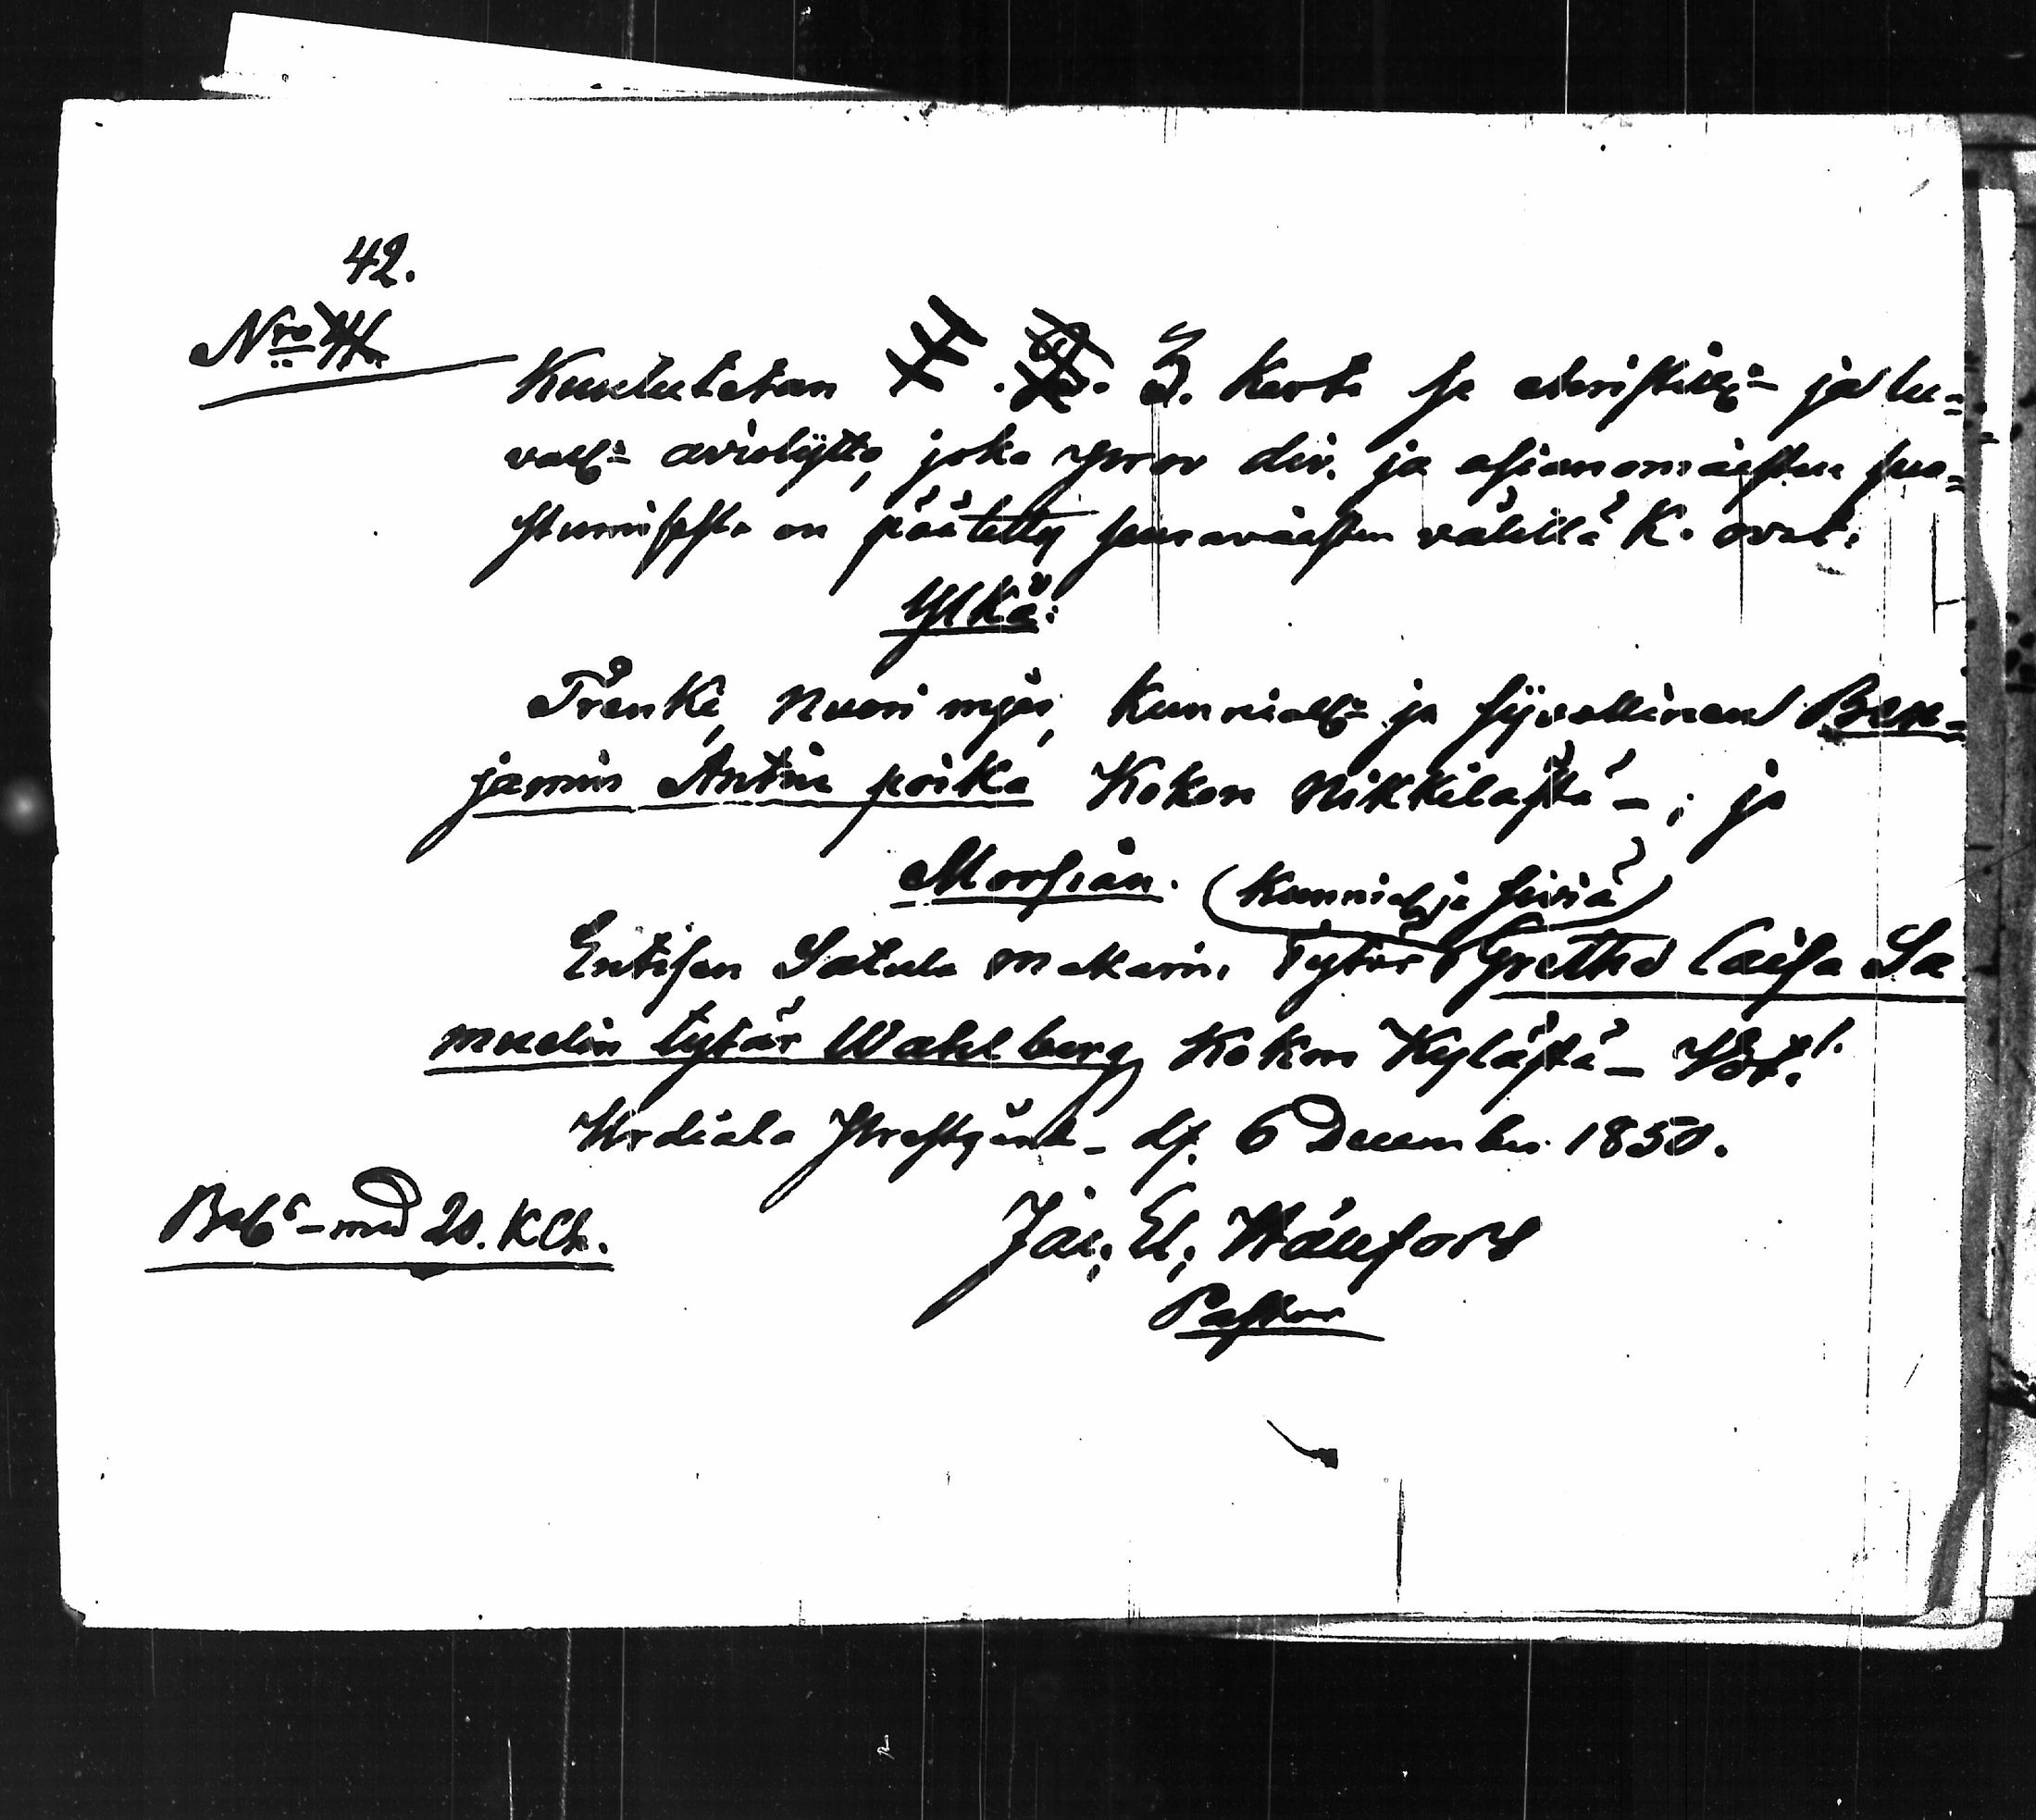 42.
Nro
Kuulutetan 3. kerta se christill: ja lu=
vall: avioliitto, joka ymmär div. ja asianomaisten suo=
stumisesta on päätetty seuraavaisten välillä K. ovat:
Ylkä:
Trenki, nuori mjes, kunniall: ja sijvollinen Ben=
jamin Antin poika Kokon Nikkilästä - ; ja
Morsian.
(kunniall: ja siviä)
Entisen Satula makarin tytär Gretha Caisa Sa
muelin tytär Wahlberg Kokon Kylästä -
Urdiala Prestgård - d. 6 December 1850.
Bref - med 20. K
Jac. El. Wänfors
Pastor